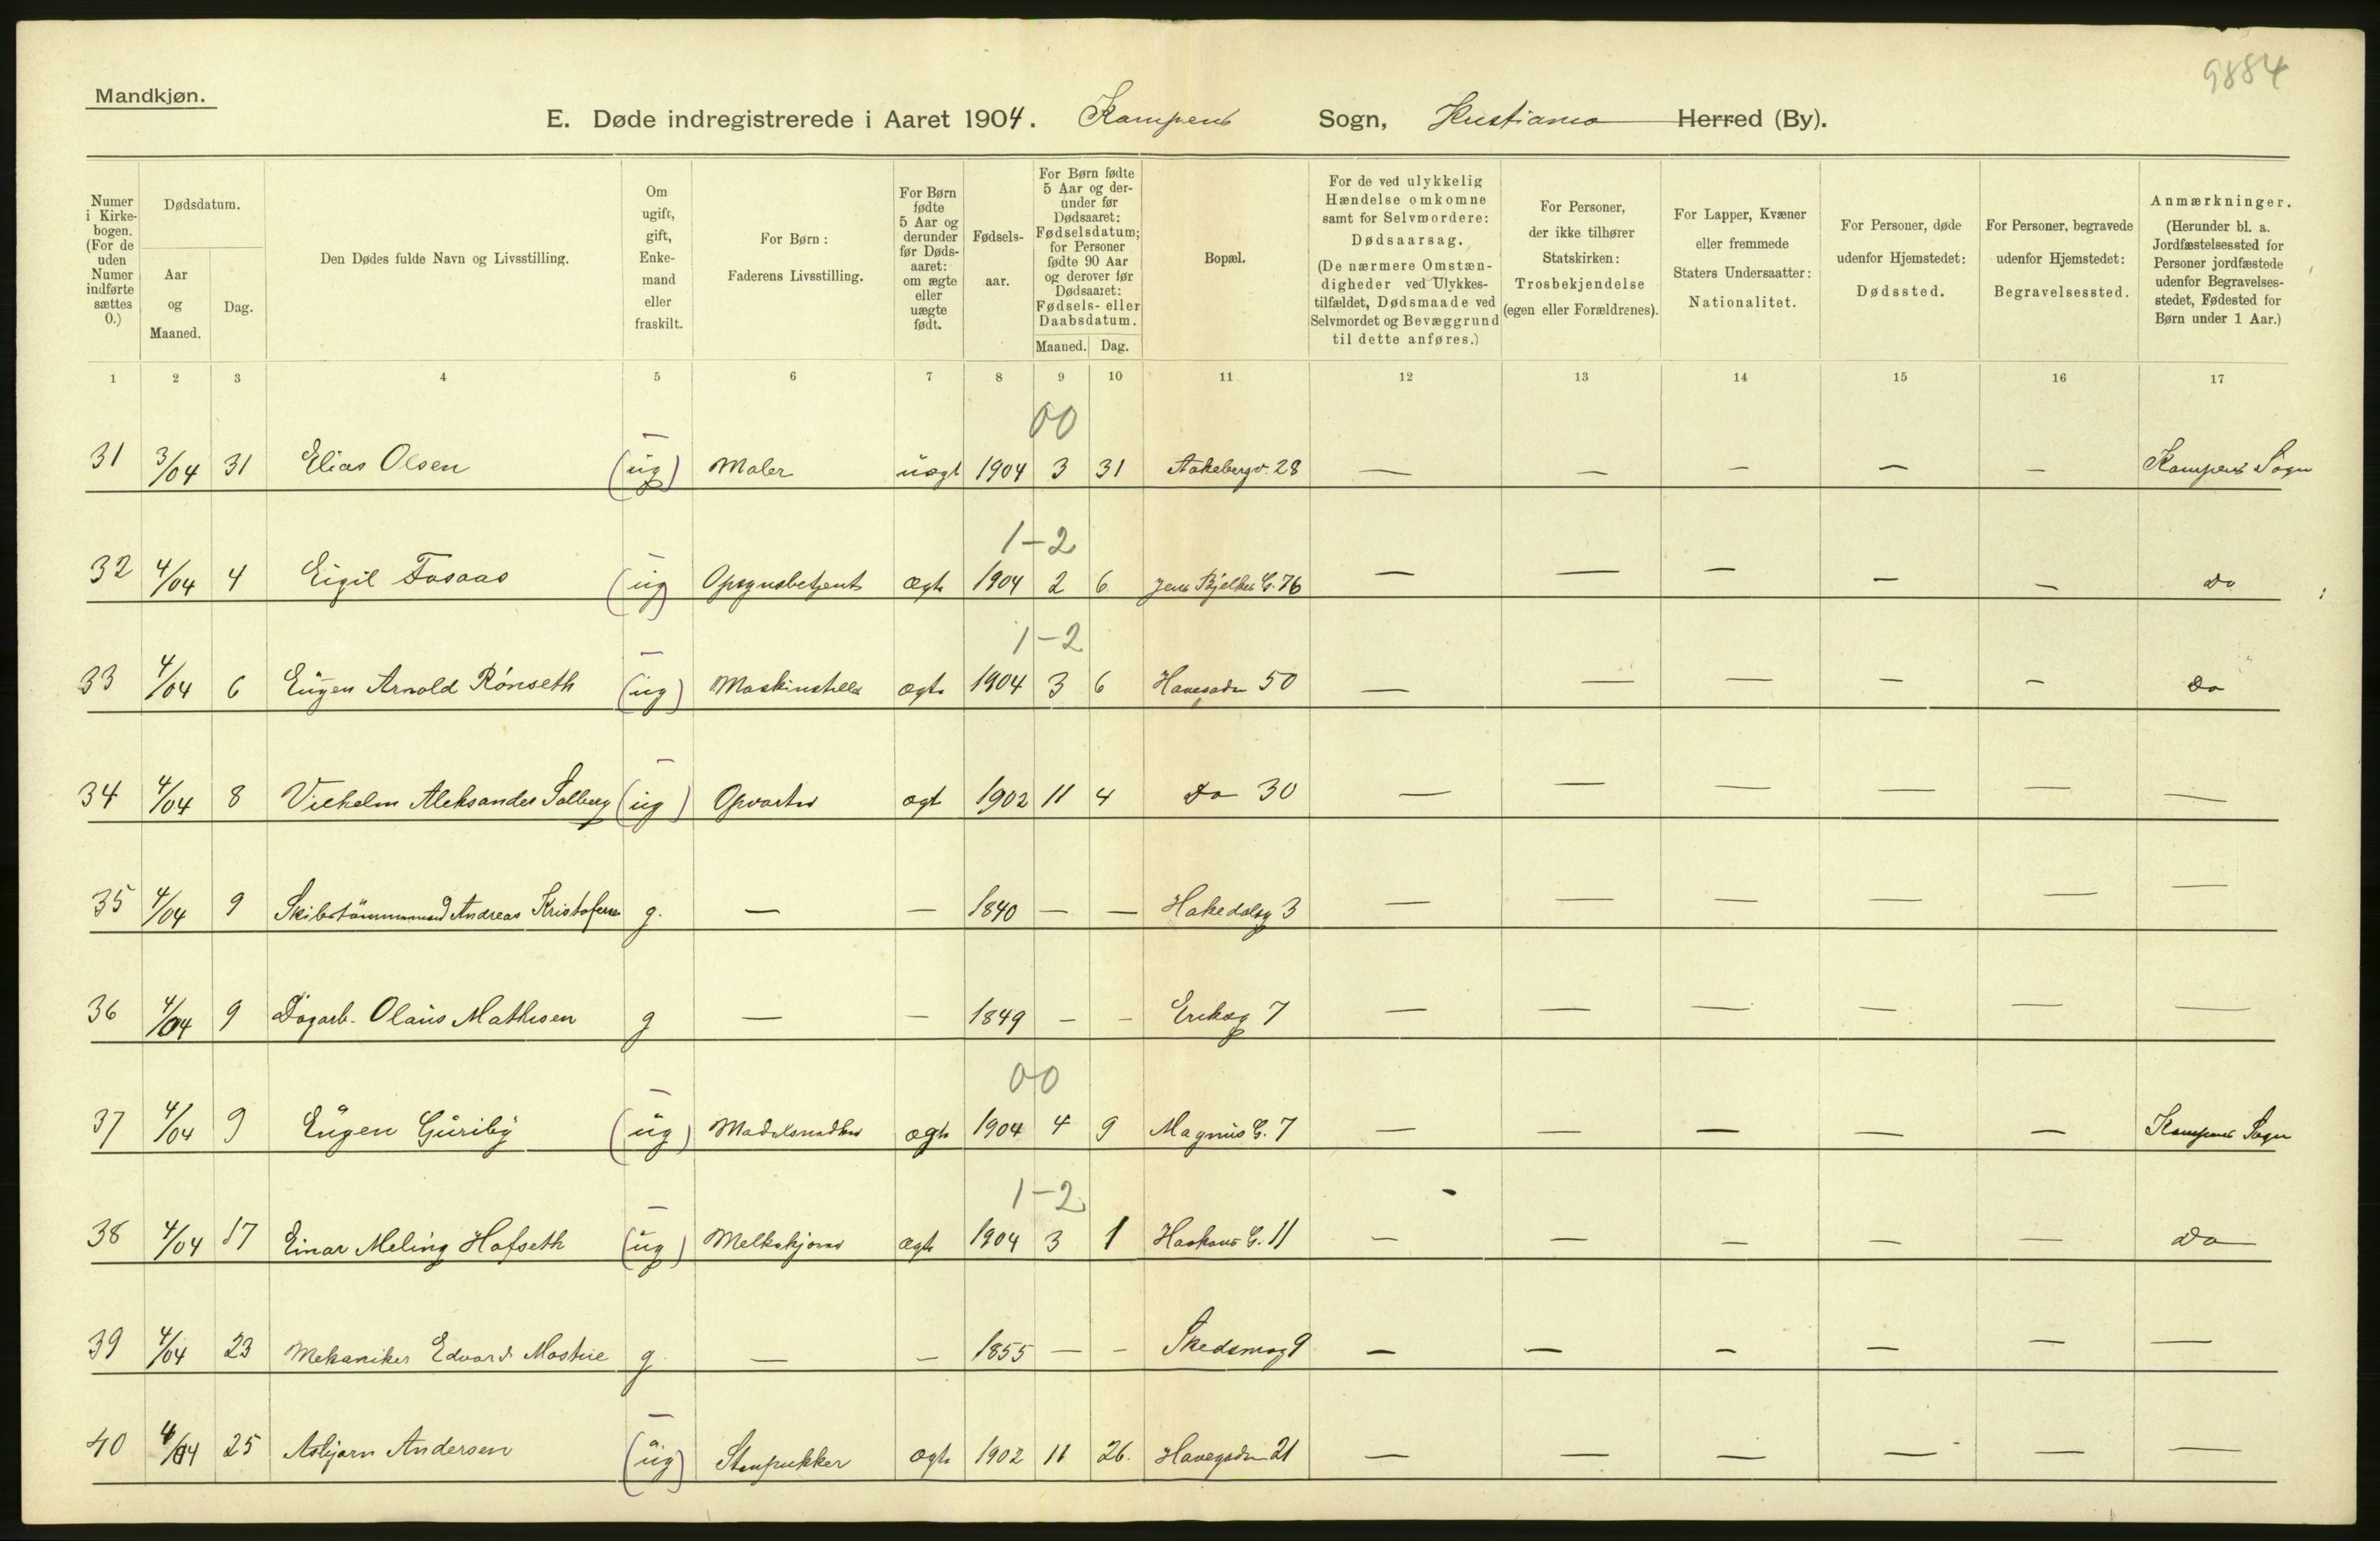 9884
Mandkjøn.
E. Døde indregistrerede i Aaret 1904. Kampens Sogn, Kristiania Herred (By).
Numer i Kirkebogen. (For de uden Numer indførte sættes 0.)
Dødsdatum.
Aar og Maaned.
Dag.
Den Dødes fulde Navn og Livsstilling.
Om ugift, gift, Enkemand eller fraskilt.
For Børn: Faderens Livsstilling.
For Børn fødte 5 Aar og derunder før Dødsaaret: om ægte eller uægte født.
Fødselsaar.
For Børn fødte 5 Aar og derunder før Dødsaaret: Fødselsdatum; for Personer fødte 90 Aar og derover før Dødsaaret: Fødsels- eller Daabsdatum.
Maaned. Dag.
Bopæl.
For de ved ulykkelig Hændelse omkomne samt for Selvmordere: Dødsaarsag. (De nærmere Omstændigheder ved Ulykkestilfældet, Dødsmaade ved Selvmordet og Bevæggrund til dette anføres.)
For Personer, der ikke tilhører Statskirken: Trosbekjendelse (egen eller Forældrenes).
For Lapper, Kvæner eller fremmede Staters Undersaatter: Nationalitet.
For Personer, døde udenfor Hjemstedet: Dødssted.
For Personer, begravede udenfor Hjemstedet: Begravelsessted.
Anmærkninger. (Herunder bl. a. Jordfæstelsessted for Personer jordfæstede udenfor Begravelsesstedet, Fødested for Børn under 1 Aar.)
1 2 3 4 5 6 7 8 9 10 11 12 13 14 15 16 17
00
31 3/04 31 Elias Olsen (ug) Maler uægt 1904 3 31 Aakebergv. 28 — — — — — Kampens Sogn
1-2
32 4/04 4 Eigil Fosaas (ug) Opsynsbetjent ægte 1904 2 6 Jens Bjelkes G. 76 — — — — — Do
1-2
33 4/04 6 Eugen Arnold Rønseth (ug) ægte 1904 3 6 Havegaden 50 — — — — — Do
34 4/04 8 Vilhelm Aleksander Solberg (ug) Opvarter ægt 1902 11 4 Do 30 — — — — — —
35 4/04 9 Skibstømmermand Andreas Kristofersen g. — — 1840 — — Hakedalsg 3 — — — — — —
36 4/04 9 Dagarb. Olaus Mathisen g — — 1849 — — Eriksg 7 — — — — — —
00
37 4/04 9 Eugen Guriby (ug) ægte 1904 4 9 Magnus G. 7 — — — — — Kampens Sogn
1-2
38 4/04 17 Einar Meling Hofseth (ug) Melkekjører ægte 1904 3 1 Haakons G. 11 — — — — — Do
39 4/04 23 Mekaniker Edvard g — — 1855 — — Skedsmog 9 — — — — — —
40 4/04 25 Asbjørn Andersen (ug) Stenpukker ægte 1902 11 26. Havegaden 21 — — — — — —